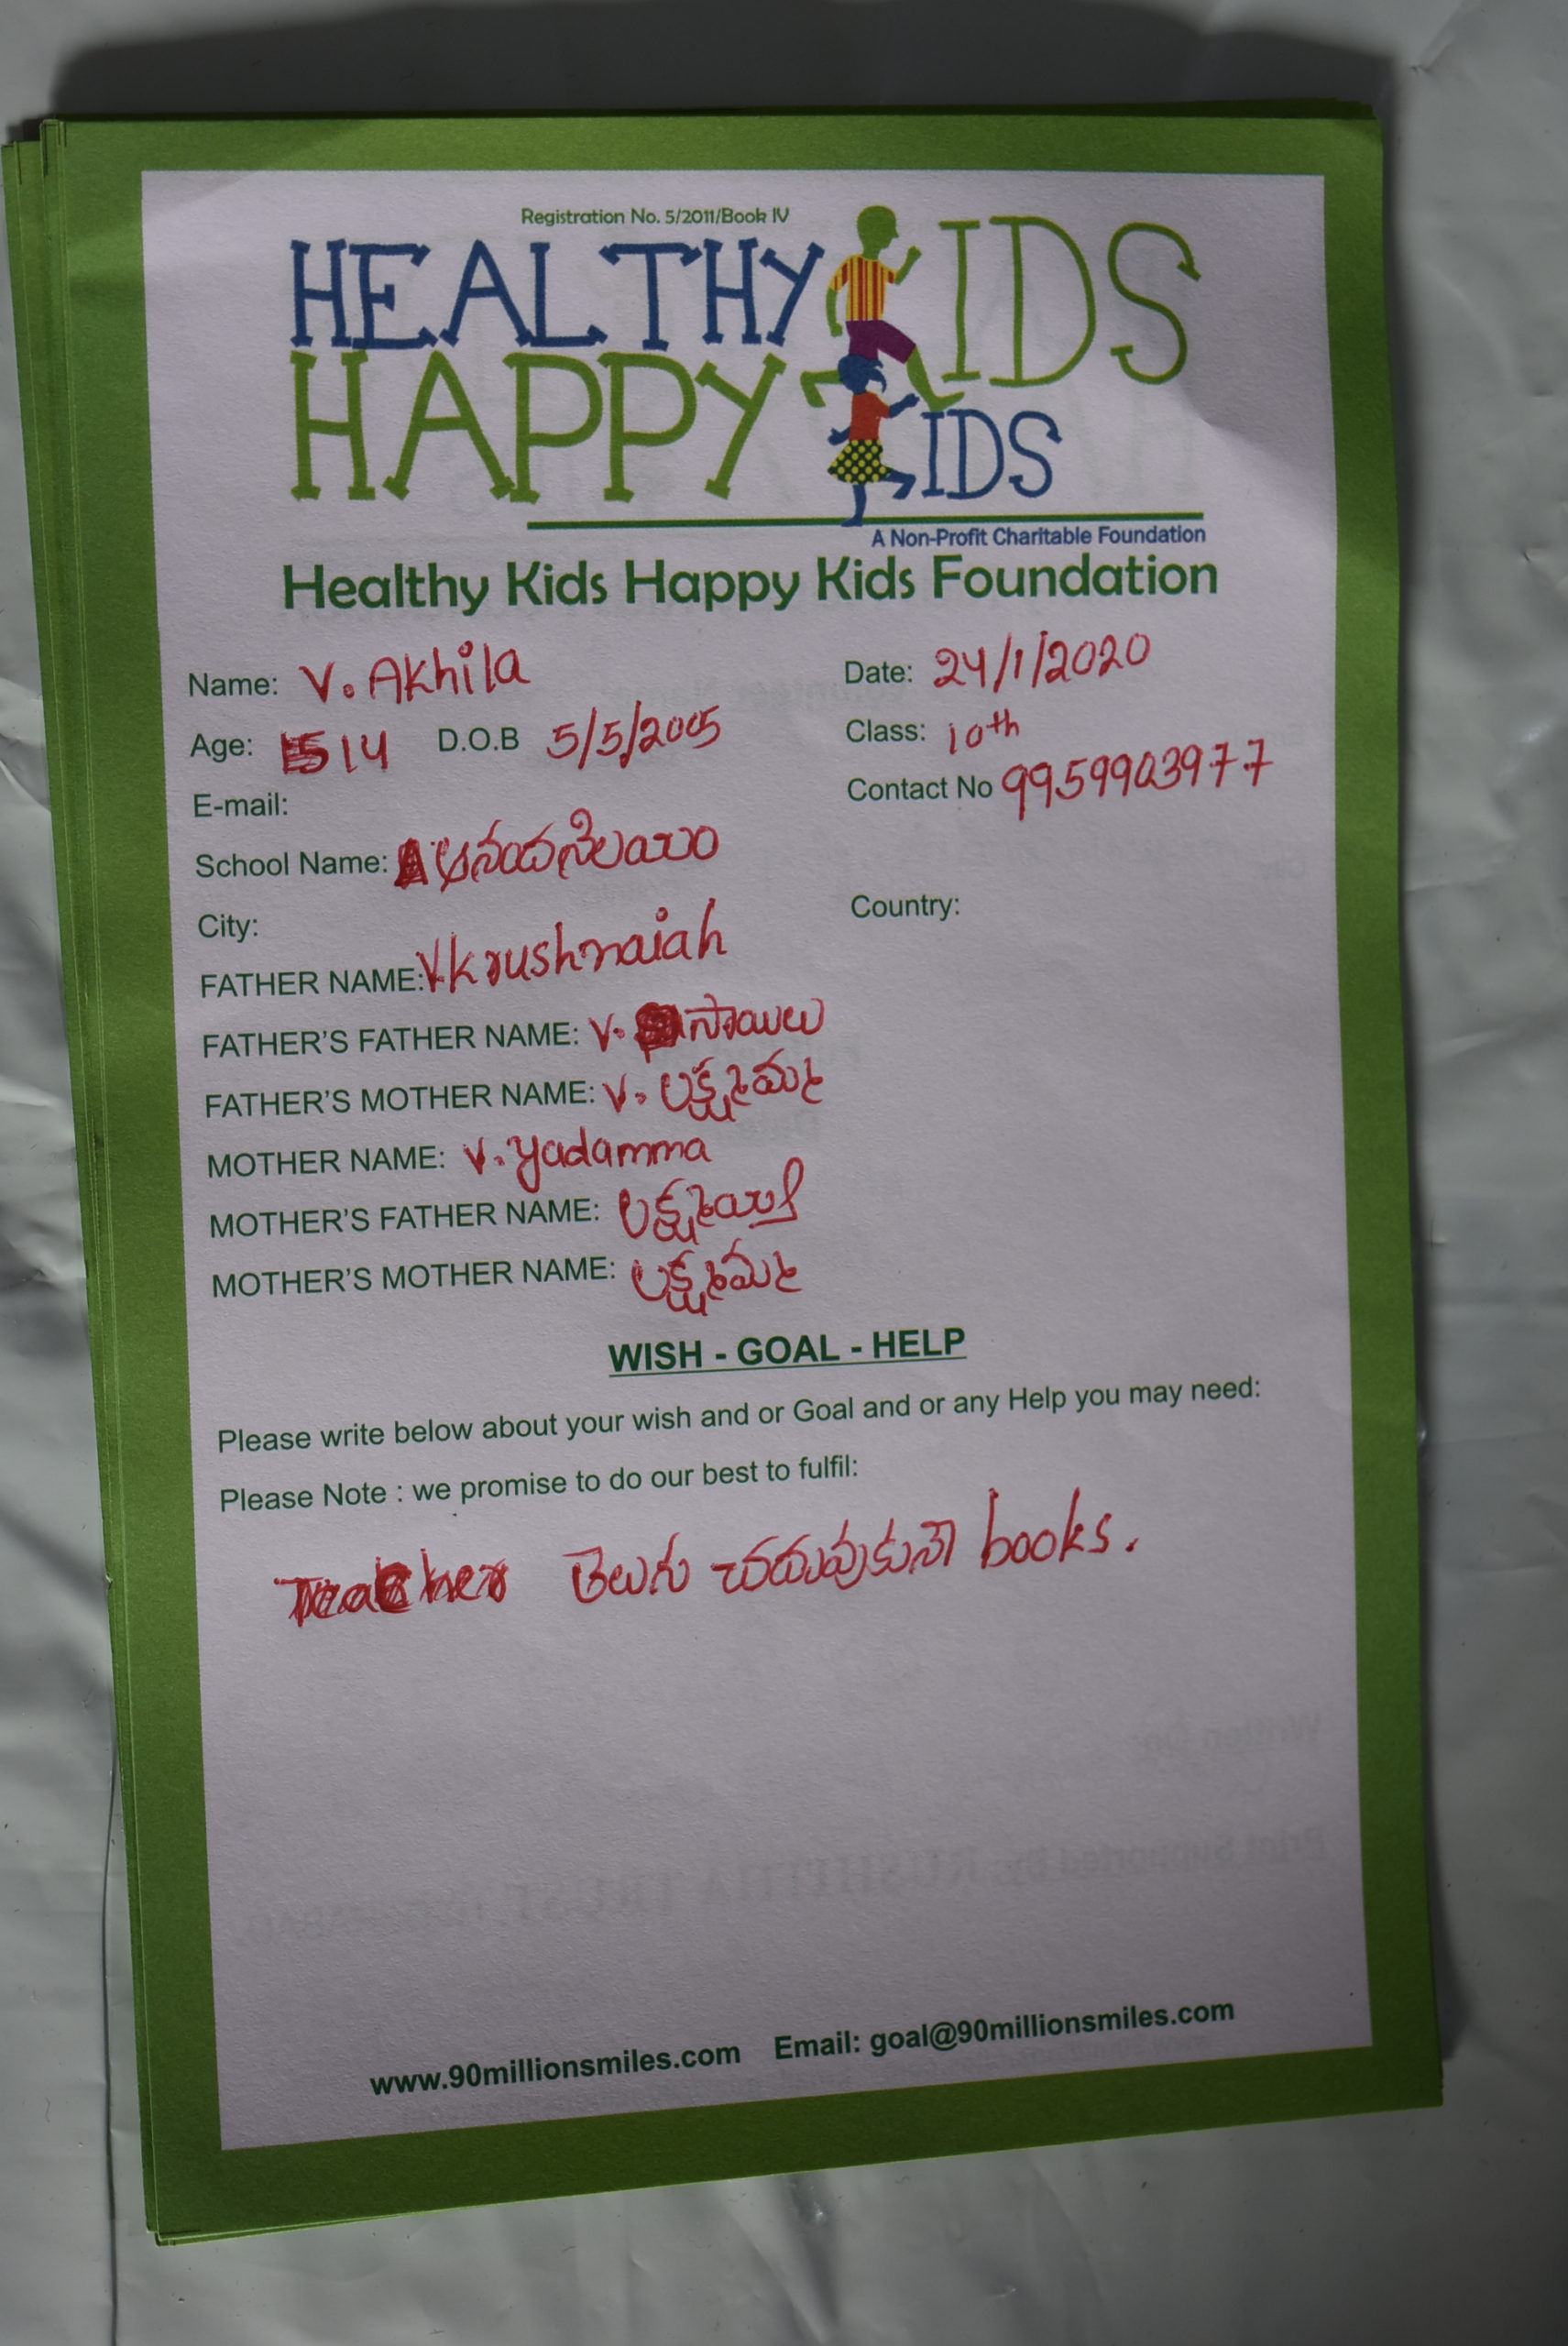 Registration No. 5/2011/Book IV
HEALTHY KIDS
HAPPY KIDS
A Non-Profit Charitable Foundation
Healthy Kids Happy Kids Foundation
Name: V. Akhila Date: 24/1/2020
Age: 14 D.O.B 5/5/2005 Class: 10th
E-mail: Contact No 9959903977
School Name:
City: Country:
FATHER NAME: V krushnaiah
FATHER'S FATHER NAME: V. సాయిలు
FATHER'S MOTHER NAME: V. లక్ష్మమ్మ
MOTHER NAME: V. yadamma
MOTHER'S FATHER NAME: లక్ష్మయ్య
MOTHER'S MOTHER NAME: లక్ష్మమ్మ
WISH - GOAL - HELP
Please write below about your wish and or Goal and or any Help you may need:
Please Note : we promise to do our best to fulfil:
Teacher తెలుగు చదువుకునే books.
www.90millionsmiles.com Email: goal@90millionsmiles.com